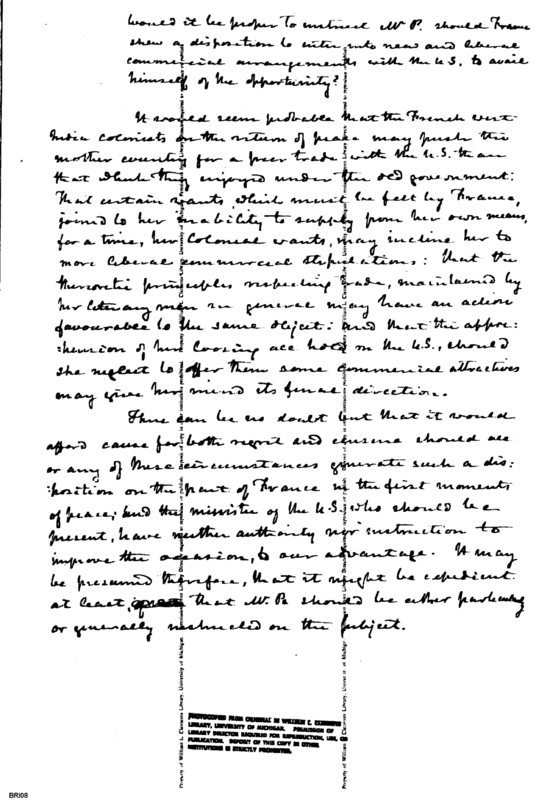 would it be proper to instruct Mr P. should France
shew a disposition to enter into new and liberal
commercial arrangements with the U.S. to avail
himself of the opportunity?
It would seem probable that the French West-
India colonists on the return of peace may push the
mother country for a freer trade with the U.S. than
that which they enjoyed under the old government:
That certain wants which must be felt by France,
joined to her inability to supply from her own means,
for a time, her Colonial wants, may incline her to
more liberal commercial stipulations: that the
theoretic principles respecting trade, maintained by
her literary men in general may have an action
favourable to the same object: and that the appre:
:hension of her loosing all hold on the U.S., should
she neglect to offer them some commercial attractives
may give her mind its final direction.
There can be no doubt but that it would
afford cause for both regret and censure should all
or any of these circumstances generate such a dis:
:position on the part of France in the first moments
of peace; and the minister of the U.S. who should be
present, have neither authority nor instruction to
improve the occasion, to our advantage. It may
be presumed therefore, that it might be expedient
at least, that Mr. P. should be either particularly
or generally instructed on the subject.
Property of William L. Clements Library, University of Michigan
Property of William L. Clements Library, University of Michigan
PHOTOCOPIED FROM ORIGINAL IN WILLIAM L. CLEMENTS
LIBRARY, UNIVERSITY OF MICHIGAN. PERMISSION OF
LIBRARY DIRECTOR REQUIRED FOR REPRODUCTION, USE, OR
PUBLICATION. DEPOSIT OF THIS COPY IN OTHER
INSTITUTIONS IS STRICTLY PROHIBITED.
BRI08